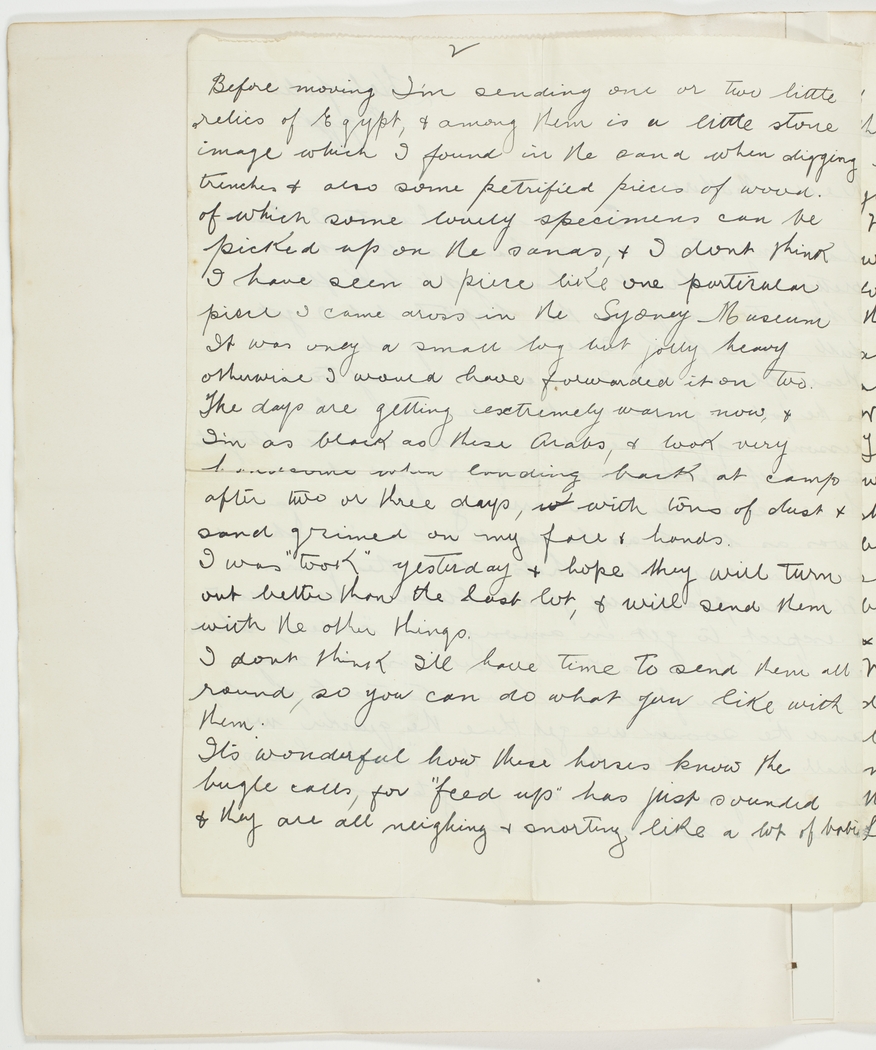 2
Before moving I'm sending one or two little
relics of Egypt, & among them is a little stone
image which I found in the sand when digging
trenches & also some petrified pieces of wood.
of which some lovely specimens can be
picked up on the sands, & I dont think
I have seen a piece like one particular
piece I came across in the Sydney Museum
It was only a small log but jolly heavy
otherwise I would have forwarded it on two.
The days are getting extremely warm now, &
I'm as black as these Arabs, & look very
handsome when landing back at camp
after two or three days, with tons of dust &
sand grimed on my face & hands.
I was "took" yesterday & hope they will turn
out better than the last lot, & will send them
with the other things.
I dont think I'll have time to send them all
round, so you can do what you like with
them.
It's wonderful how these horses know the
bugle calls, for "feed up" has just sounded
& they are all neighing & snorting like a lot of